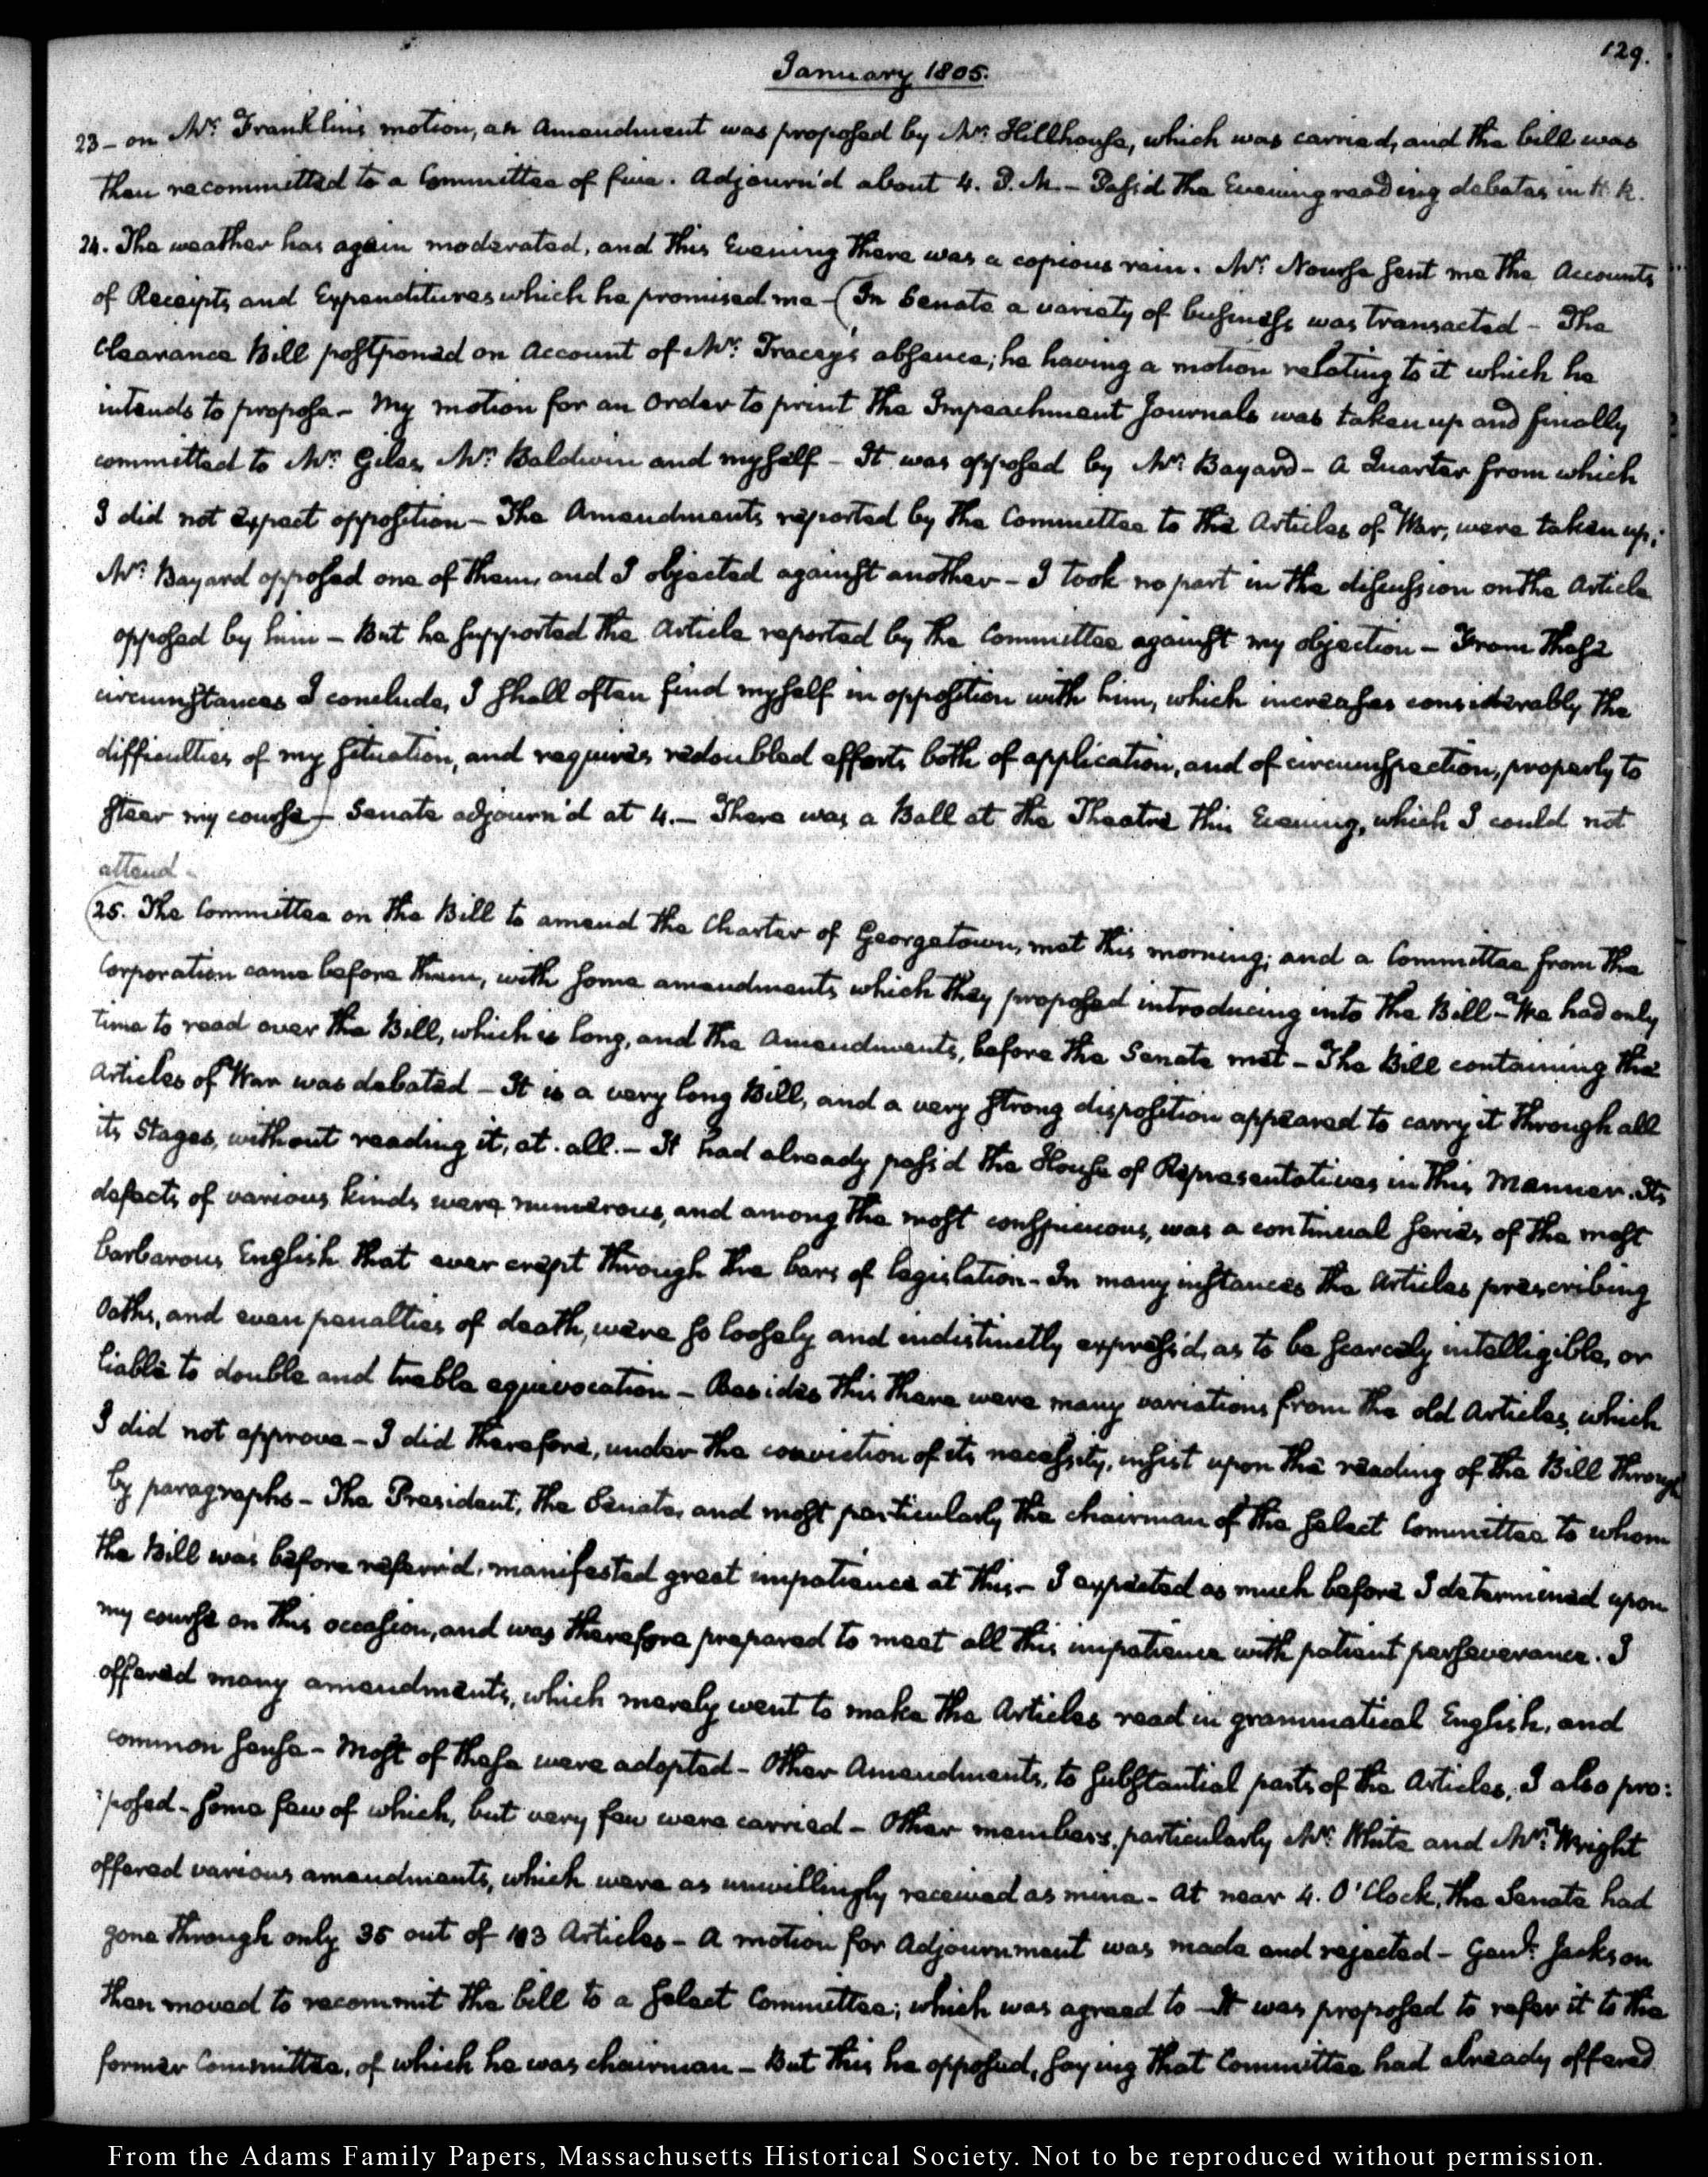 129.
January 1805.
23 - on Mr. Franklin's motion, an Amendment was proposed by Mr. Hillhouse, which was carried, and the bill was
then recommitted to a Committee of five. Adjourn'd about 4. P. M. - Pass'd the Evening reading debates in
24. The weather has again moderated, and this Evening there was a copious rain. Mr. Nourse sent me the Accounts
of Receipts and Expenditures which he promised me - (In Senate a variety of business was transacted - The
Clearance Bill postponed on Account of Mr. Tracey's absence; he having a motion relating to it which he
intends to propose - My motion for an Order to print the Impeachment Journals was taken up and finally
committed to Mr. Giles, Mr. Baldwin and myself - It was opposed by Mr. Bayard - A Quarter from which
I did not expect opposition - The Amendments reported by the Committee to the Articles of War, were taken up;
Mr. Bayard opposed one of them, and I objected against another - I took no part in the discussion on the Article
opposed by him - But he supported the Article reported by the Committee against my objection - From these
circumstances I conclude, I shall often find myself in opposition with him, which increases considerably the
difficulties of my situation, and requires redoubled efforts both of application, and of circumspection, properly to
steer my course) - Senate adjourn'd at 4. - There was a Ball at the Theatre this Evening, which I could not
attend -
(25. The Committee on the Bill to amend the Charter of Georgetown, met this morning; and a Committee from the
Corporation came before them, with some amendments which they proposed introducing into the Bill - We had only
time to read over the Bill, which is long, and the Amendments, before the Senate met - The Bill containing the
Articles of War was debated - It is a very long Bill, and a very strong disposition appeared to carry it through all
its Stages, without reading it, at all. - It had already pass'd the House of Representatives in this Manner. Its
defects of various kinds were numerous, and among the most conspicuous, was a continual series of the most
barbarous English that ever crept through the bars of legislation - In many instances the Articles prescribing
Oaths, and even penalties of death, were so loosely and indistinctly express'd, as to be scarcely intelligible, or
liable to double and treble equivocation - Besides this there were many variations from the old Articles, which
I did not approve - I did therefore, under the conviction of its necessity, insist upon the reading of the Bill through
by paragraphs - The President, the Senate, and most particularly the chairman of the select Committee to whom
the Bill was before referr'd, manifested great impatience at this - I expected as much before I determined upon
my course on this occasion, and was therefore prepared to meet all this impatience with patient perseverance. I
offered many amendments, which merely went to make the Articles read in grammatical English, and
common sense - Most of these were adopted - Other Amendments, to substantial parts of the Articles, I also pro:
:posed - some few of which, but very few were carried - Other members, particularly Mr. White and Mr. Wright
offered various amendments, which were as unwillingly received as mine - At near 4. O'Clock, the Senate had
gone through only 35 out of 103 Articles - A motion for Adjournment was made and rejected - Genl. Jackson
then moved to recommit the bill to a select Committee; which was agreed to - It was proposed to refer it to the
former Committee, of which he was chairman - But this he opposed, saying that Committee had already offered
From the Adams Family Papers, Massachusetts Historical Society. Not to be reproduced without permission.